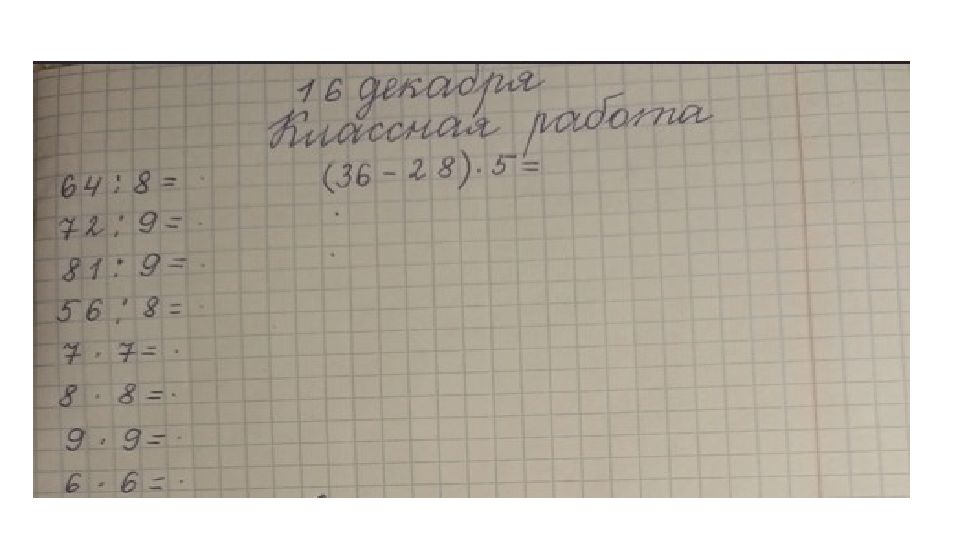 16 декабря
Классная работа
64 : 8 =
(36 - 28) · 5 =
72 : 9 =
81 : 9 =
56 : 8 =
7 · 7 =
8 · 8 =
9 · 9 =
6 · 6 =